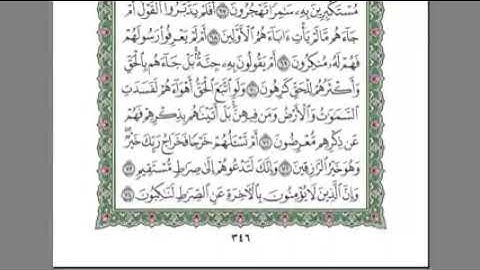 مُسْتَكْبِرِينَ بِهِۦ سَٰمِرًا تَهْجُرُونَ ۝٦٧ أَفَلَمْ يَدَّبَّرُوا۟ ٱلْقَوْلَ أَمْ
جَآءَهُم مَّا لَمْ يَأْتِ ءَابَآءَهُمُ ٱلْأَوَّلِينَ ۝٦٨ أَمْ لَمْ يَعْرِفُوا۟ رَسُولَهُمْ
فَهُمْ لَهُۥ مُنكِرُونَ ۝٦٩ أَمْ يَقُولُونَ بِهِۦ جِنَّةٌۢ بَلْ جَآءَهُم بِٱلْحَقِّ
وَأَكْثَرُهُمْ لِلْحَقِّ كَٰرِهُونَ ۝٧٠ وَلَوِ ٱتَّبَعَ ٱلْحَقُّ أَهْوَآءَهُمْ لَفَسَدَتِ
ٱلسَّمَٰوَٰتُ وَٱلْأَرْضُ وَمَن فِيهِنَّ ۚ بَلْ أَتَيْنَٰهُم بِذِكْرِهِمْ فَهُمْ
عَن ذِكْرِهِم مُّعْرِضُونَ ۝٧١ أَمْ تَسْـَٔلُهُمْ خَرْجًا فَخَرَاجُ رَبِّكَ خَيْرٌ ۖ
وَهُوَ خَيْرُ ٱلرَّٰزِقِينَ ۝٧٢ وَإِنَّكَ لَتَدْعُوهُمْ إِلَىٰ صِرَٰطٍ مُّسْتَقِيمٍ ۝٧٣
وَإِنَّ ٱلَّذِينَ لَا يُؤْمِنُونَ بِٱلْـَٔاخِرَةِ عَنِ ٱلصِّرَٰطِ لَنَٰكِبُونَ ۝٧٤
٣٤٦